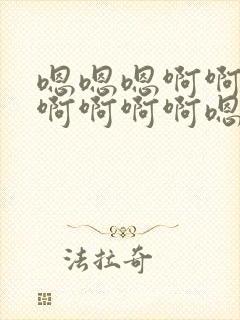 嗯嗯嗯啊啊
啊啊啊啊嗯
法拉奇